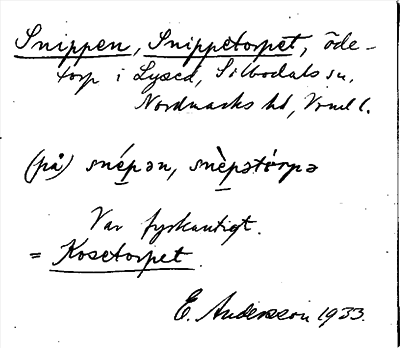 Snippen, Snippetorpet, öde-
torp i Lysed, Silbodals sn,
Nordmarks hd, Vrml.
(på) snépən, snèpətórpə
Var fyrkantigt.
= Kosetorpet.
E. Andersson 1933.